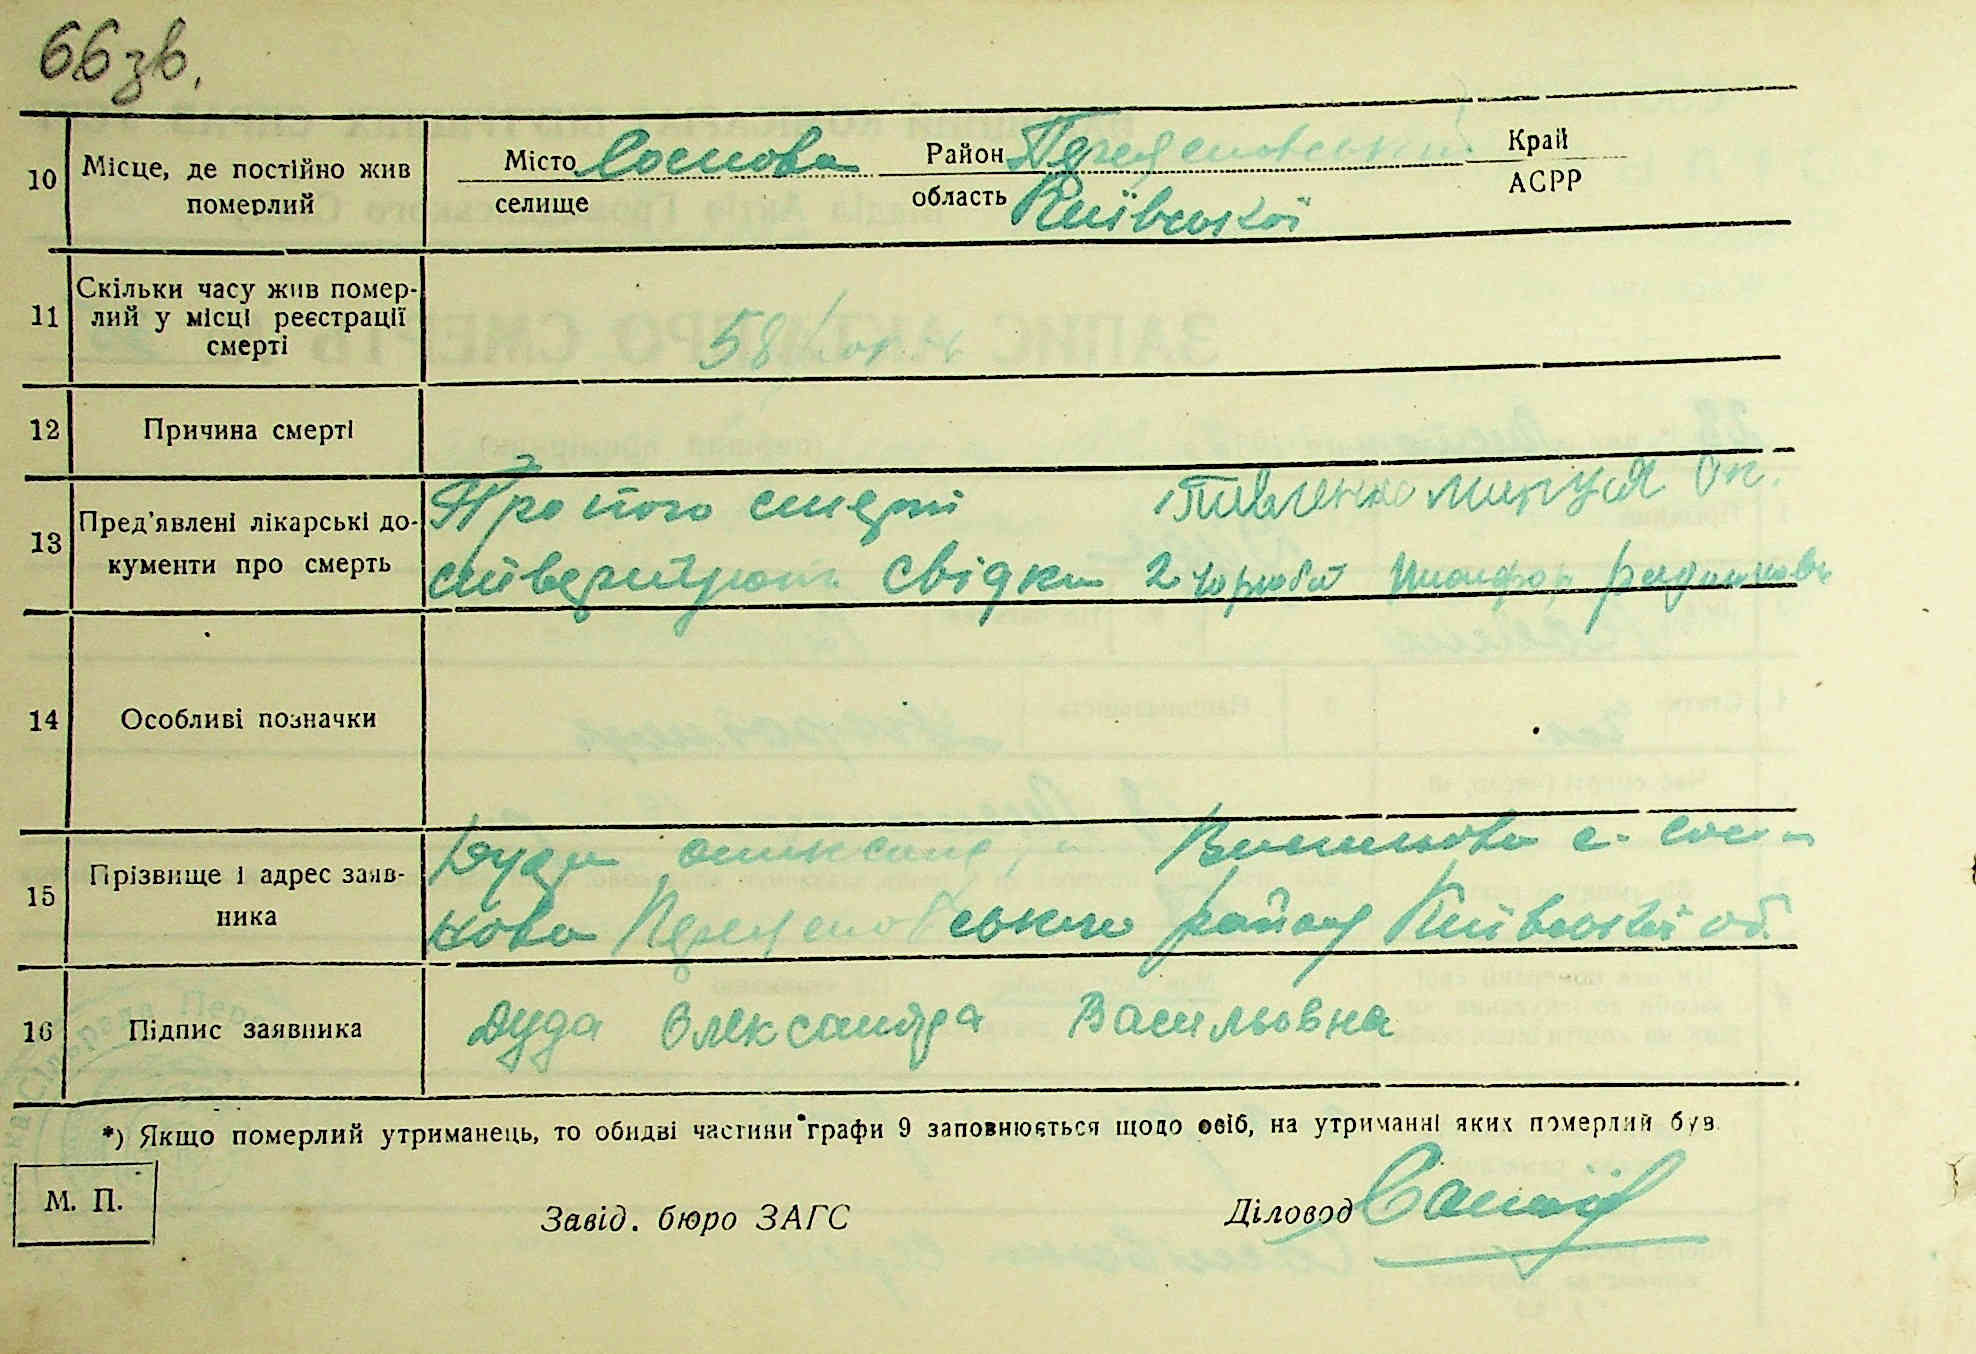 66 зв.
10 Місце, де постійно жив померлий Місто селище Соснова Район Переяславський область Київської Край АСРР
11 Скільки часу жив помер-
лий у місці реєстрації
смерті 58
12 Причина смерті
13 Пред'явлені лікарські до-
кументи про смерть
Про його смерть Павленко
свідки 2
14 Особливі позначки
15 Прізвище і адрес заяв-
ника
Дуда Васильовна с. Сос-
нова Переяславського району Київської об.
16 Підпис заявника Дуда Олександра Васильовна
*) Якщо померлий утриманець, то обидві частини графи 9 заповнюється щодо осіб, на утриманні яких померлий був.
М. П. Завід. бюро ЗАГС Діловод